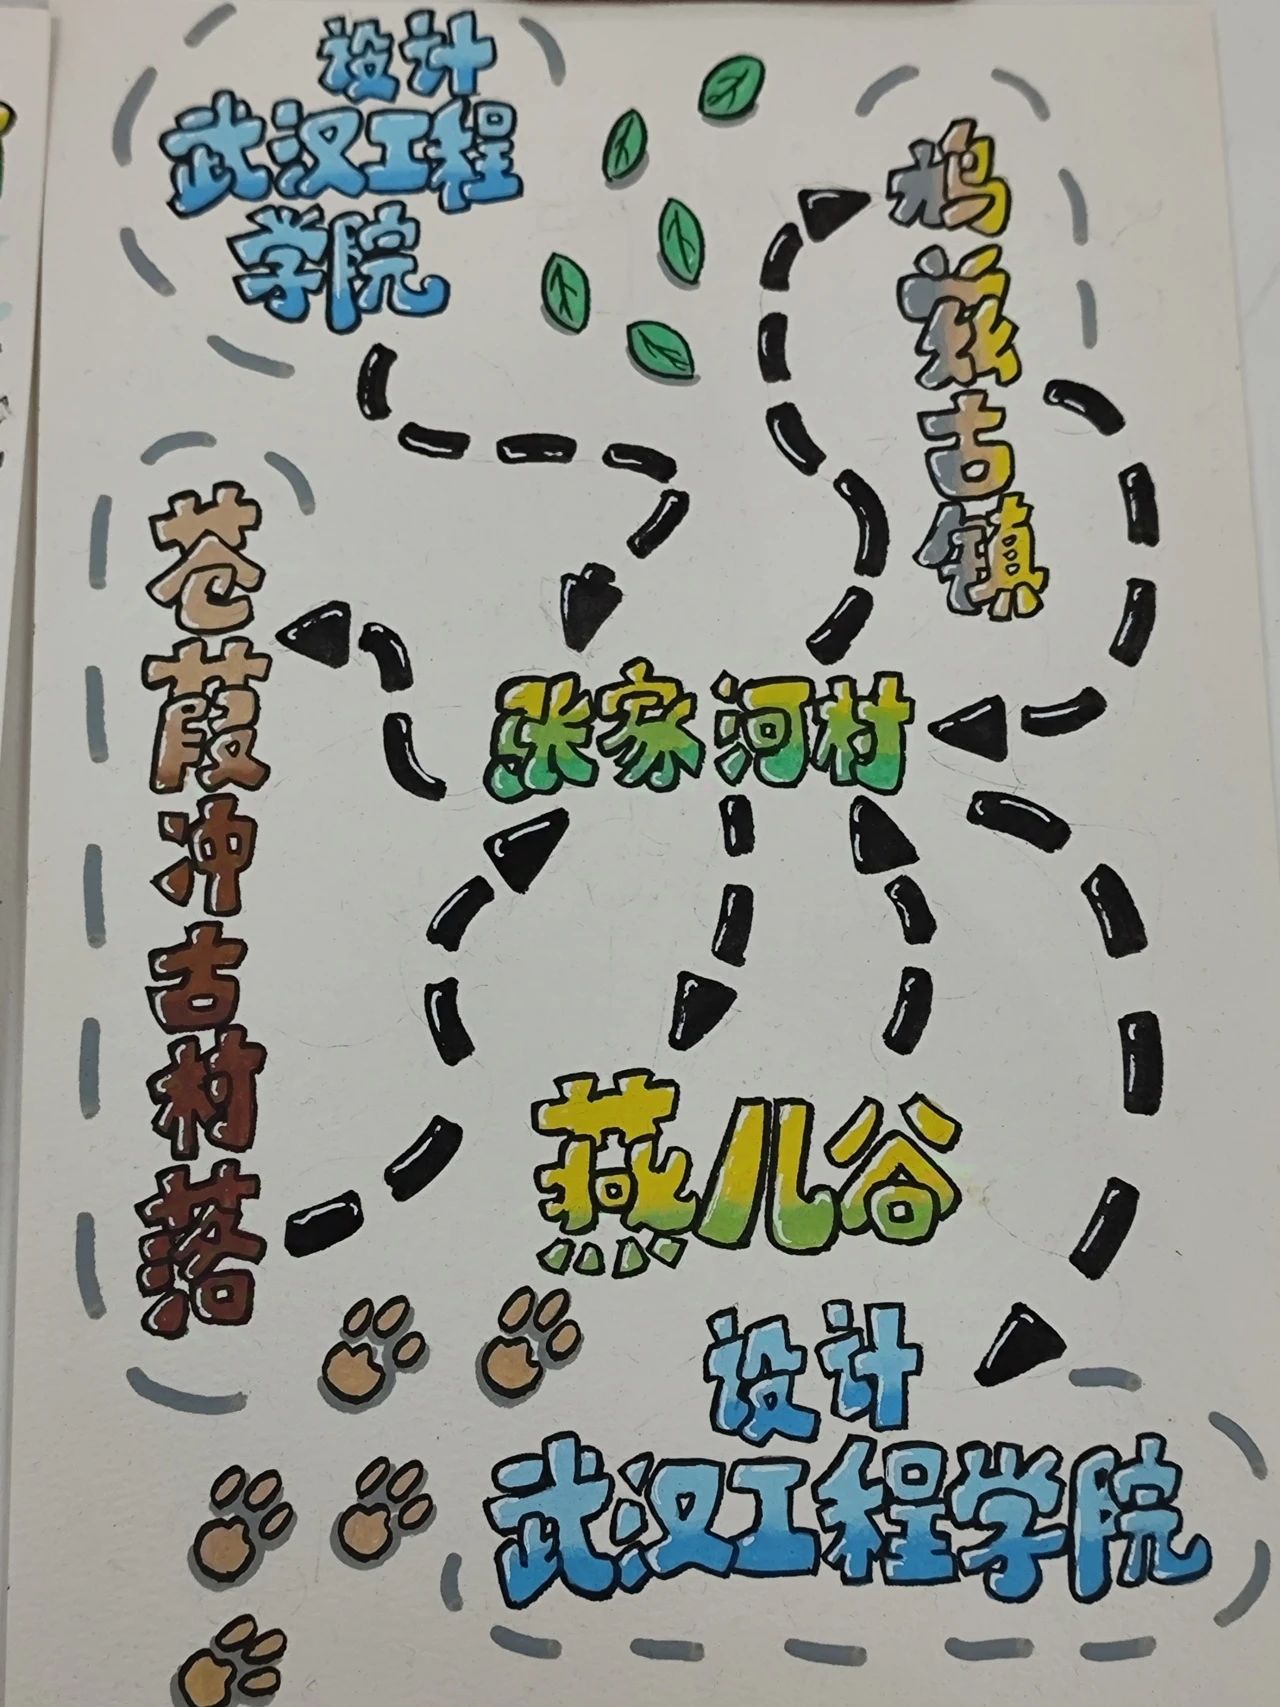 设计
武汉工程
学院
鸦兹古镇
苍葭冲古村落
张家河村
燕儿谷
设计
武汉工程学院